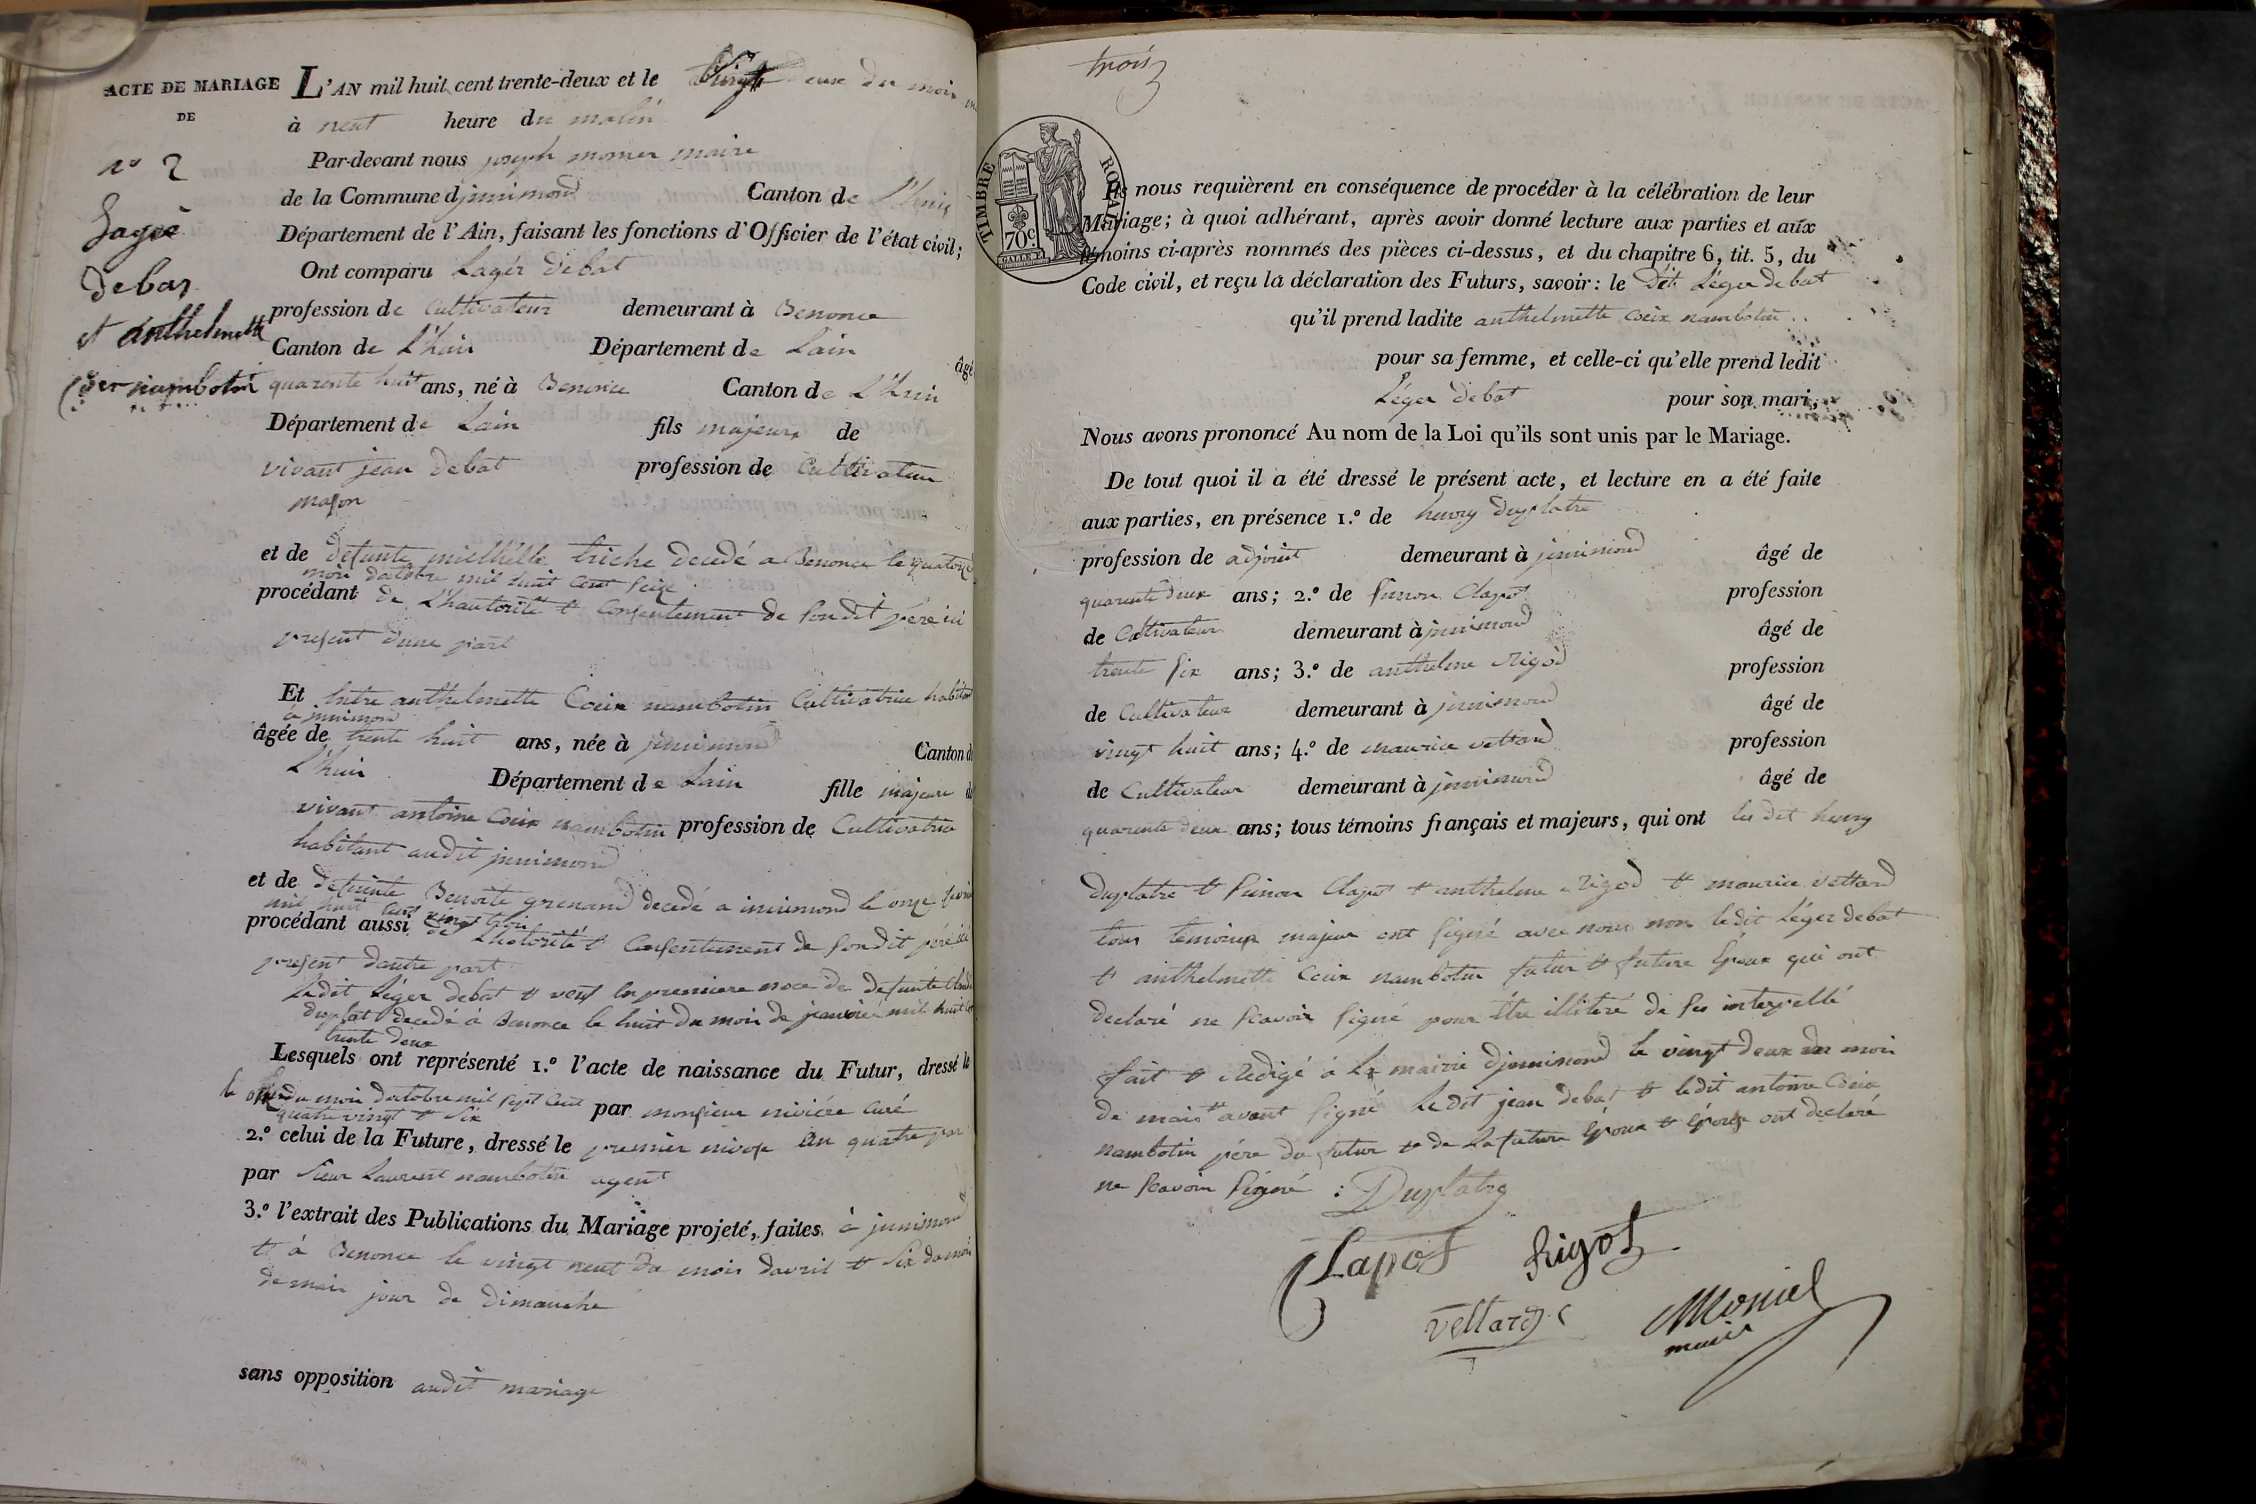 ACTE DE MARIAGE
DE
n° 2
Lagér
debas
et anthelmette
nambotin
L'AN mil huit cent trente-deux et le vingt deux du mois
à neuf heure du matin
Par-devant nous joseph monier maire
de la Commune djnnimond Canton de L'huis
Département de l'Ain, faisant les fonctions d'Officier de l'état civil;
Ont comparu Lagér debat
profession de Cultivateur demeurant à Benonce
Canton de L'huis Département de Lain âgé
quarente huit ans, né à Benonce Canton de L'huis
Département de Lain fils majeur de
vivant jean debat profession de Cultivateur
mason
et de defunte triche decedé a Benonce le quatorze
mois doctobre mil huit cent seize
procédant de L'hautorité et Consentement de son dit père ici
present dune part
Et Entre anthelmette Coux nambotin Cultivatrice habitant
a jnnimond
âgée de trente huit ans, née à jnnimond Canton de
L'huis Département de Lain fille majeure de
vivant antoine Coux nambotin profession de Cultivatrice
habitant audit jnnimond
et de defunte Benoite grenand decedé a innimond le onze fevrier
mil huit cent vingt trois
procédant aussi de L'hotorité et Consentement de son dit père ici
present dautre part
Le dit Léger debat et veuf en premiere noce de defunte
duplat decedé à Benonce le huit du mois de janvier mil huit cent
trente deux
Lesquels ont représenté 1.° l'acte de naissance du Futur, dressé le
le du mois doctobre mil sept cent
quatre vingt et six par monsieur curé
2.° celui de la Future, dressé le premier nivose an quatre
par sieur Laurent nambotin agent
3.° l'extrait des Publications du Mariage projeté, faites à jnnimond
et à Benonce le vingt neuf du mois davril et six du mois
de mais jour de dimanche
sans opposition audit mariage
trois
TIMBRE ROYAL
70c.
Et nous requièrent en conséquence de procéder à la célébration de leur
Mariage; à quoi adhérant, après avoir donné lecture aux parties et aux
témoins ci-après nommés des pièces ci-dessus, et du chapitre 6, tit. 5, du
Code civil, et reçu la déclaration des Futurs, savoir: le dit Léger debat
qu'il prend ladite anthelmette Coux nambotin
pour sa femme, et celle-ci qu'elle prend ledit
Léger debat pour son mari,
Nous avons prononcé Au nom de la Loi qu'ils sont unis par le Mariage.
De tout quoi il a été dressé le présent acte, et lecture en a été faite
aux parties, en présence 1.° de henry duplatre
profession de adjoint demeurant à jnnimond âgé de
quarente deux ans; 2.° de simon Clapot profession
de Coltivateur demeurant à jnnimond âgé de
trente six ans; 3.° de anthelme Rigod profession
de Cultivateur demeurant à jnnimond âgé de
vingt huit ans; 4.° de maurice vettard profession
de Cultivateur demeurant à jnnimond âgé de
quarente deux ans; tous témoins français et majeurs, qui ont les dit henry
Duplatre et simon Clapot et anthelme Rigod et maurice vettard
tous temoins majeur ont signé avec nous non ledit Léger debat
et anthelmette Coux nambotin futur et future Epoux qui ont
declaré ne scavoir signé pour être illiteré de ses interpellé
fait et Redigé à la mairie djnnimond le vingt deux du mois
de mais et avant signé Le dit jean debat et ledit antoine Coux
nambotin père du futur et de la future Epoux et Epouse ont declaré
ne scavoir signé : Duplatre
Clapot Rigot
Vettard
Moniel
maire